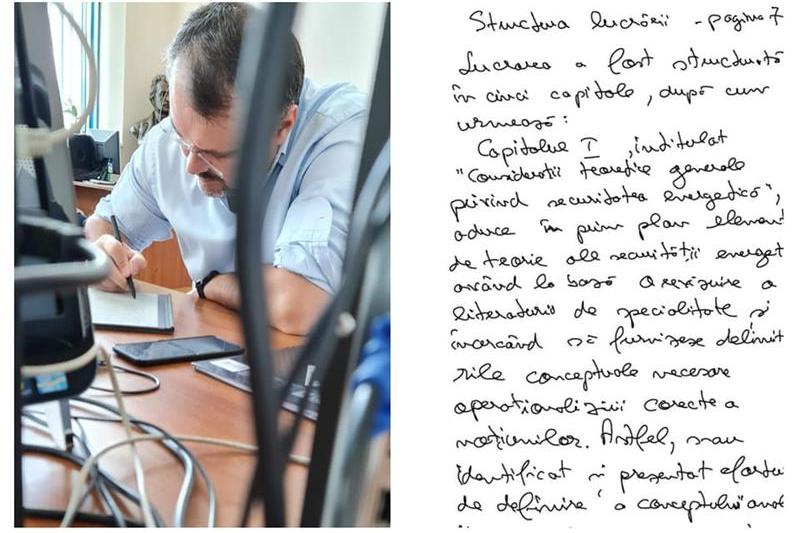 Structura lucrării - pagina 7
Lucrarea a fost structurată
în cinci capitole, după cum
urmează:
Capitolul I, intitulat
"Considerații teoretice generale
privind securitatea energetică",
aduce în prim plan element
de teorie ale securității energet
având la bază o revizuire a
literaturii de specialitate și
încercând să furnizeze definit
iile conceptuale necesare
operaționalizării corecte a
noțiunilor. Astfel, s-au
identificat și prezentat efortu
de definire a conceptului